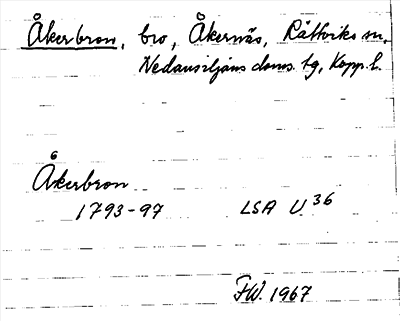 Åkerbron, bro, Åkernäs, Rättviks sn,
Nedansiljans doms. tg, Kopp. l.
Åkerbron
1793-97 LSA U 36
F.W. 1967